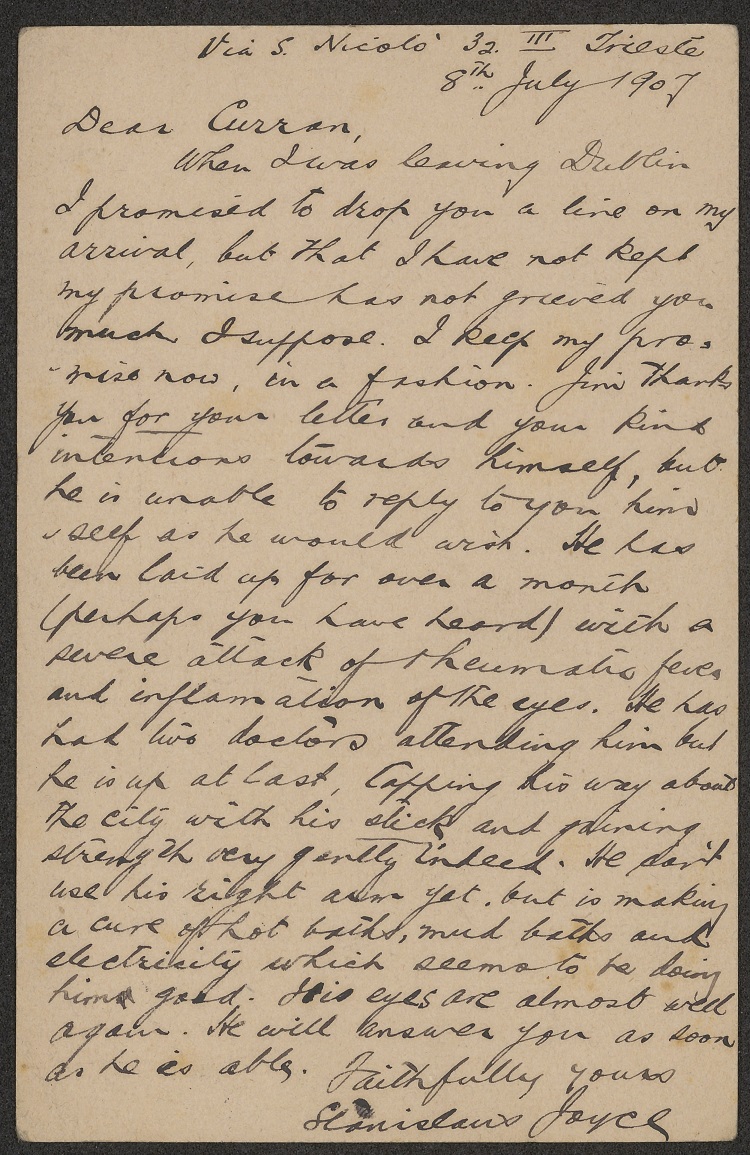 Via S. Nicolò 32. III Trieste
8th July 1907
Dear Curran,
When I was leaving Dublin
I promised to drop you a line on my
arrival, but that I have not kept
my promise has not grieved you
much I suppose. I keep my pro-
-mise now, in a fashion. Jim thanks
you for your letter and your kind
intentions towards himself, but
he is unable to reply to you him
-self as he would wish. He has
been laid up for over a month
(perhaps you have heard) with a
severe attack of rheumatic fever
and inflamation of the eyes. He has
had two doctors attending him but
he is up at last, tapping his way about
the city with his stick and gaining
strength very gently indeed. He can't
use his right arm yet, but is making
a cure of hot baths, mud baths and
electricity which seems to be doing
him good. His eyes are almost well
again. He will answer you as soon
as he is able. Faithfully yours
Stanislaus Joyce